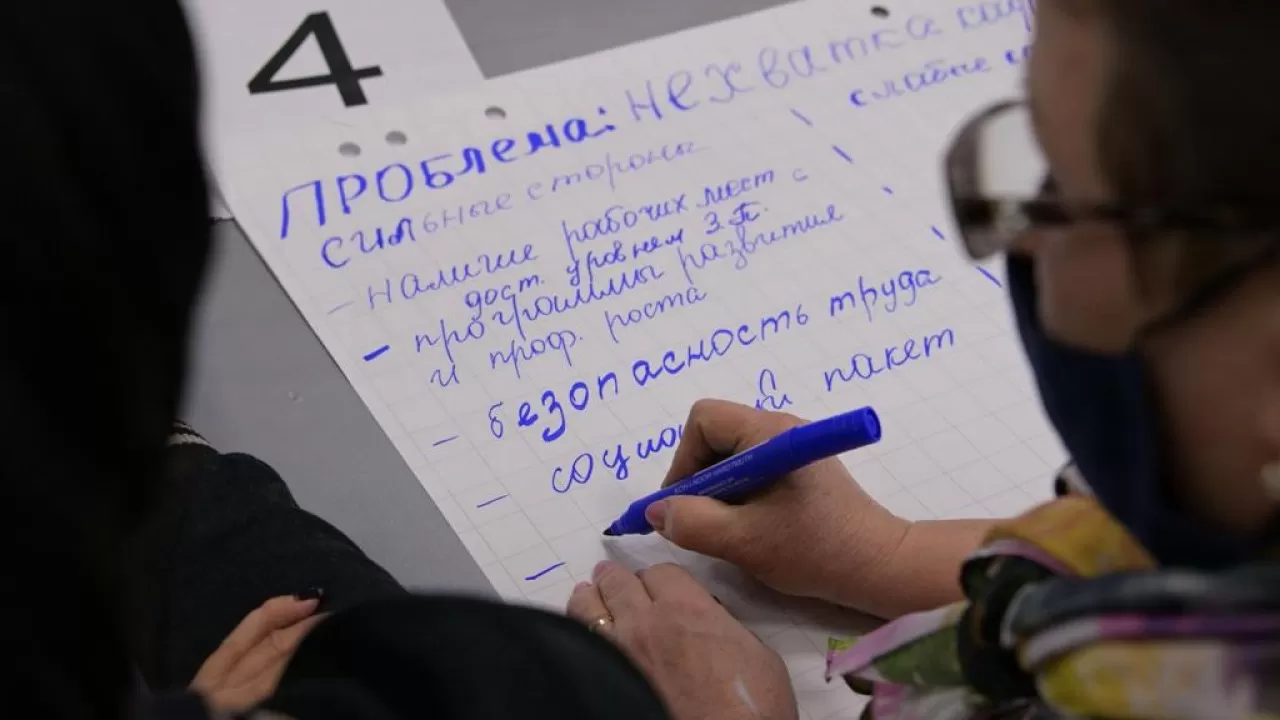 4
Проблема: нехватка
сильные стороны
слабые
- наличие рабочих мест с
дост. уровнем З.П.
- программы развития
и проф. роста
- безопасность труда
- пакет
-